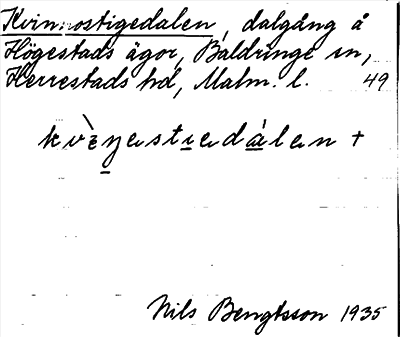 Kvinnostigedalen, dalgång å
Högestads ägor, Baldringe sn,
Herrestads hd, Malm. l. 49
kvèŋestiedálen +
Nils Bengtsson 1935